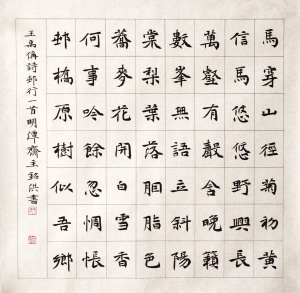 馬穿山徑菊初黃
信馬悠悠野興長
萬壑有聲含晚籟
數峯無語立斜陽
棠梨葉落胭脂色
蕎麥花開白雪香
何事吟餘忽惆悵
邨橋原樹似吾鄉
王禹偁詩邨行一首明潭齋主銘洪書